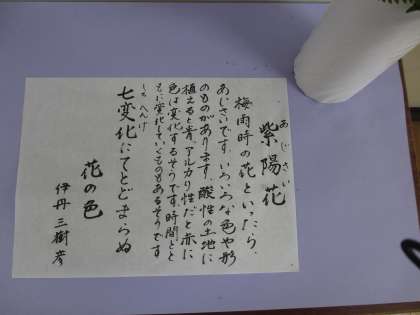 あじさい
紫陽花
梅雨時の花といったら、
あじさいです。いろいろな色や形
のものがあります。酸性の土地に
植えると青、アルカリ性だと赤に
色は変化するそうです。時間とと
もに変化していくものもあるそうです
しち へんげ
七変化にてとどまらぬ
花の色
伊丹三樹彦